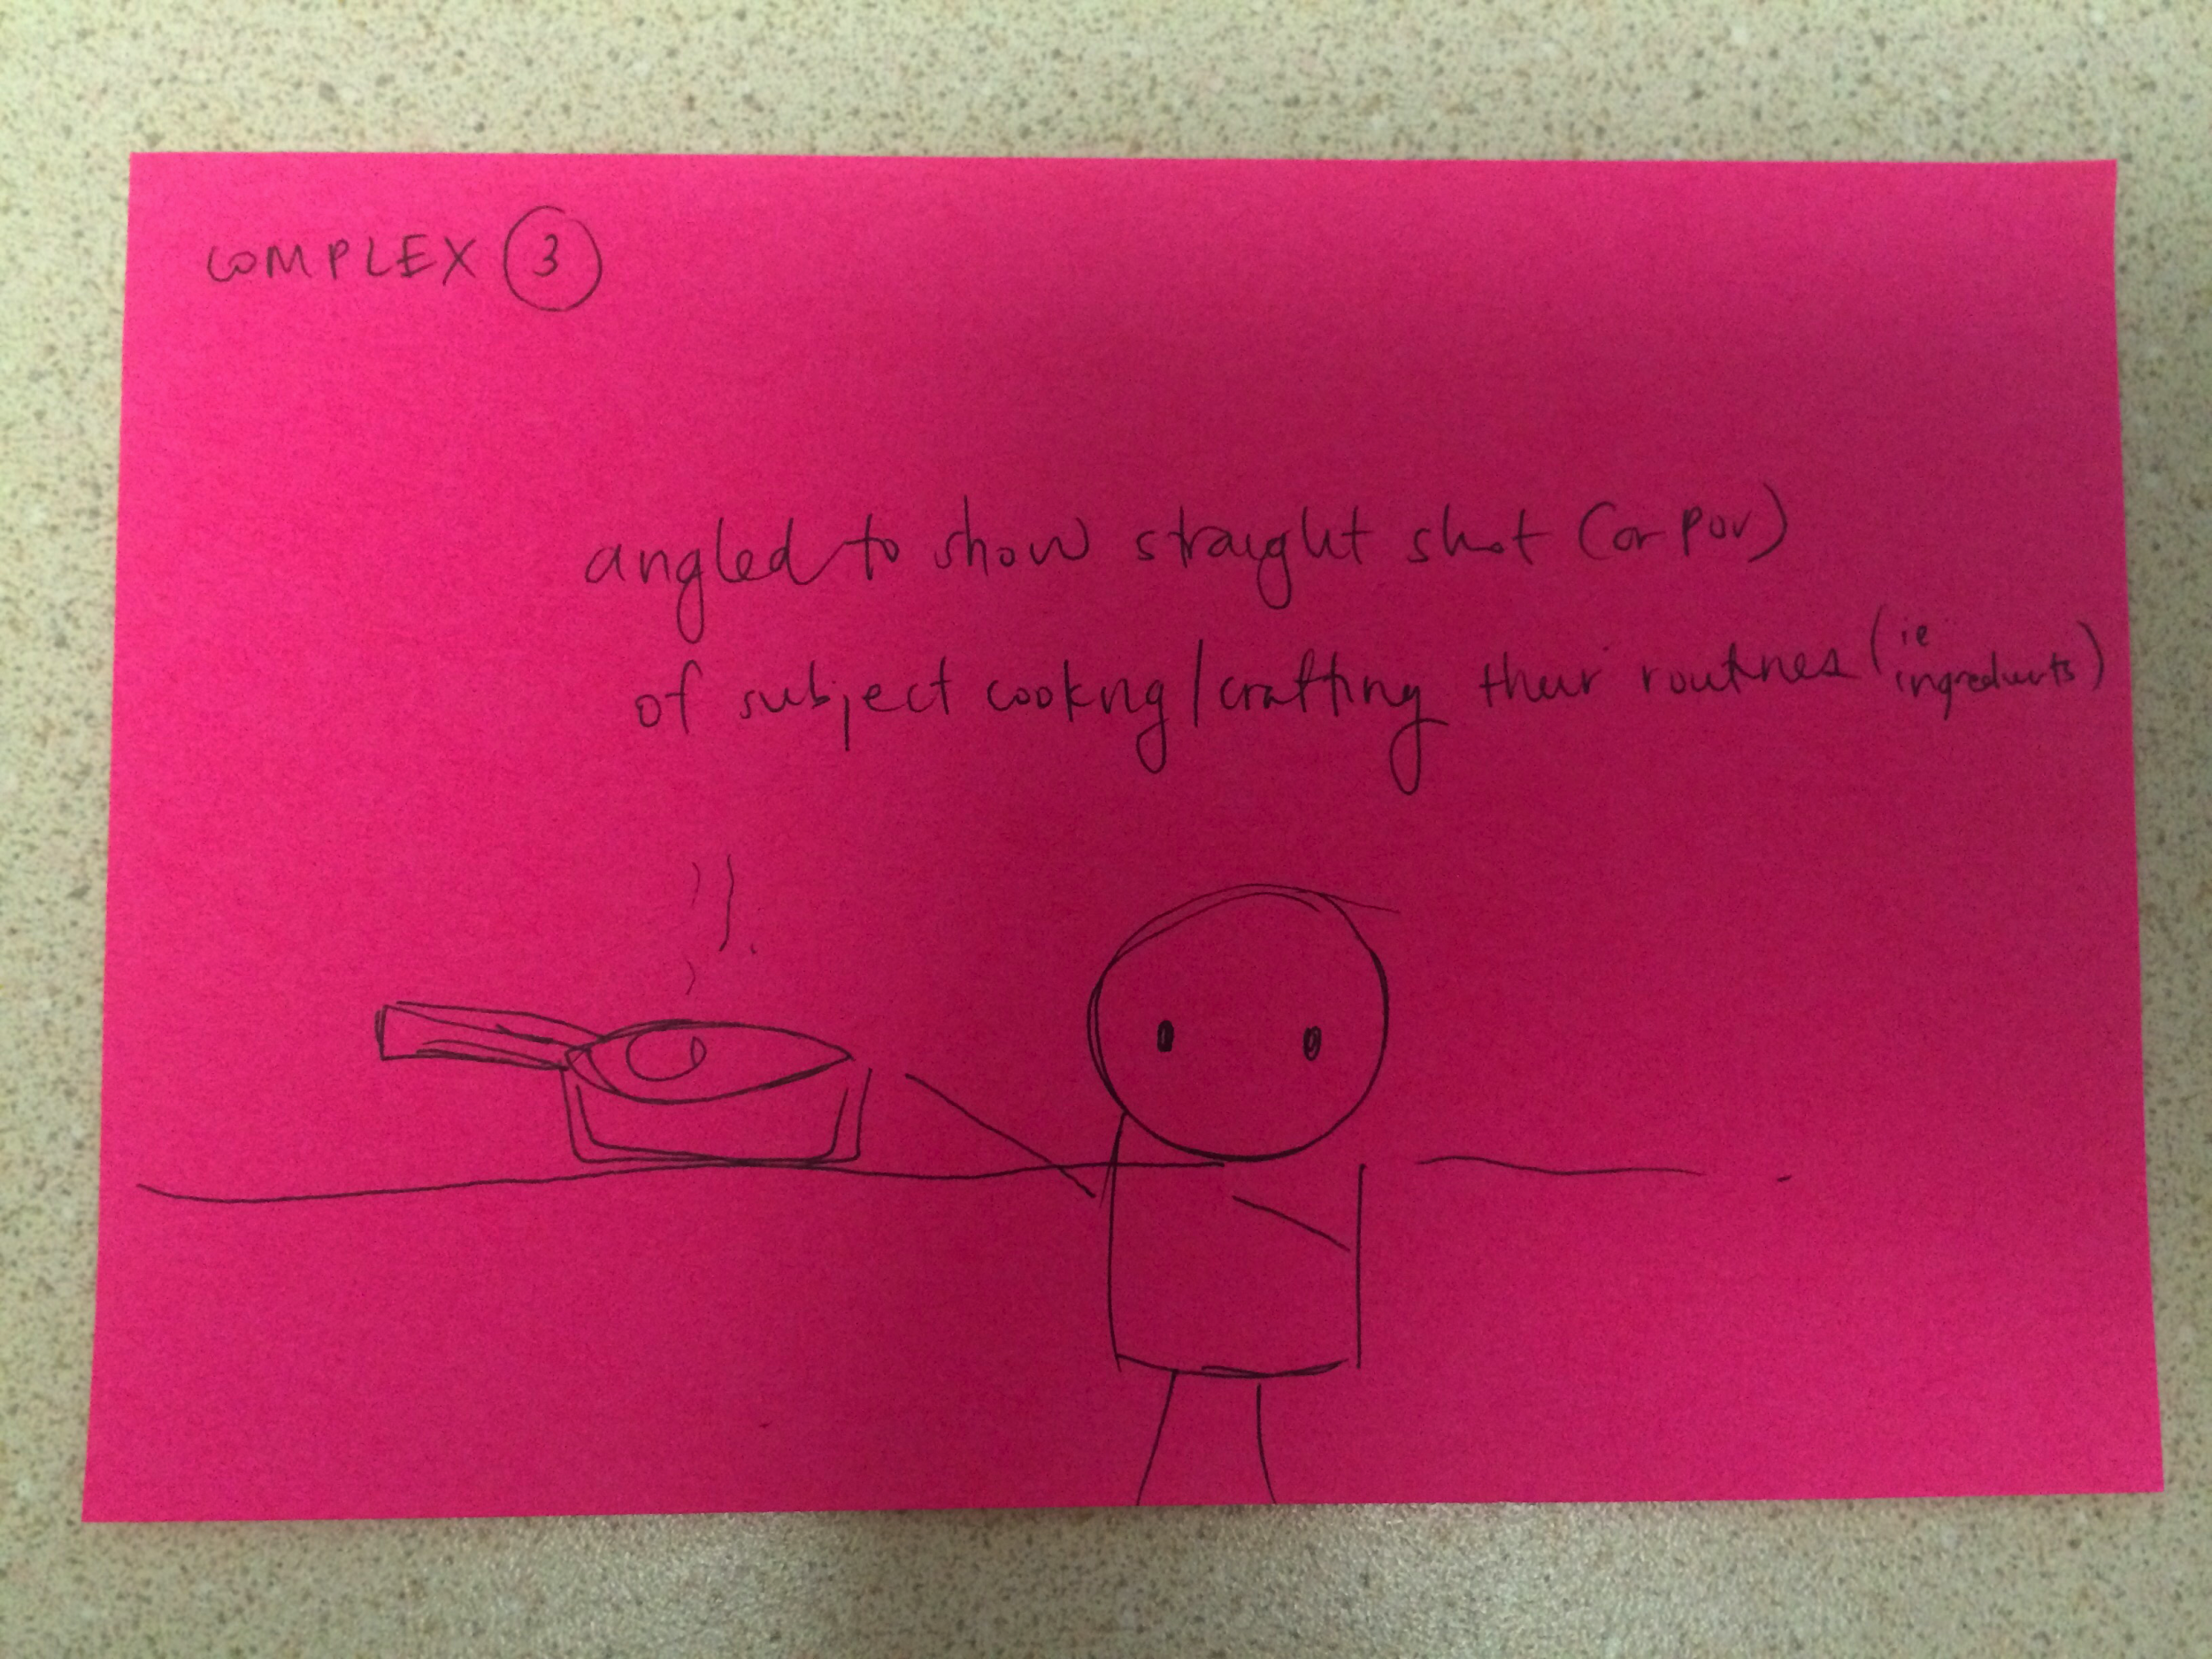 COMPLEX 3
angled to show straight shot (or POV)
of subject cooking/crafting their routines (ie ingredients)